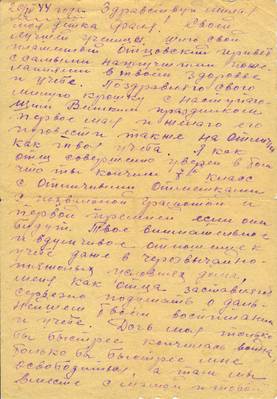 44 года. Здравствуй милая
моя детка Фаля! Своей
лучшей ученице, шлю свой
пламенный отцовский привет
с самыми наилучшими поже
ланиями в твоем здоровье
и учебе. Поздравляю свою
милую крошку наступаю
щим Великим праздником
первое мая и желаю его
провести также на отлично
как твоя учеба. Я как
отец совершенно уверен в том
что ты кончишь класс
с отличными отметками
и похвальной грамотой и
первой премией если они
будут. Твое внимательное
и вдумчивое отношение к
учебе даже в чрезвычайно
тяжелых условиях дома
меня как отца заставляет
серьезно подумать о даль
нейшем твоем воспитании
и учебе. Дочь моя только
бы быстрее кончилась война
только бы быстрее мне
освободиться, а там мы
вместе с мамой и тобой